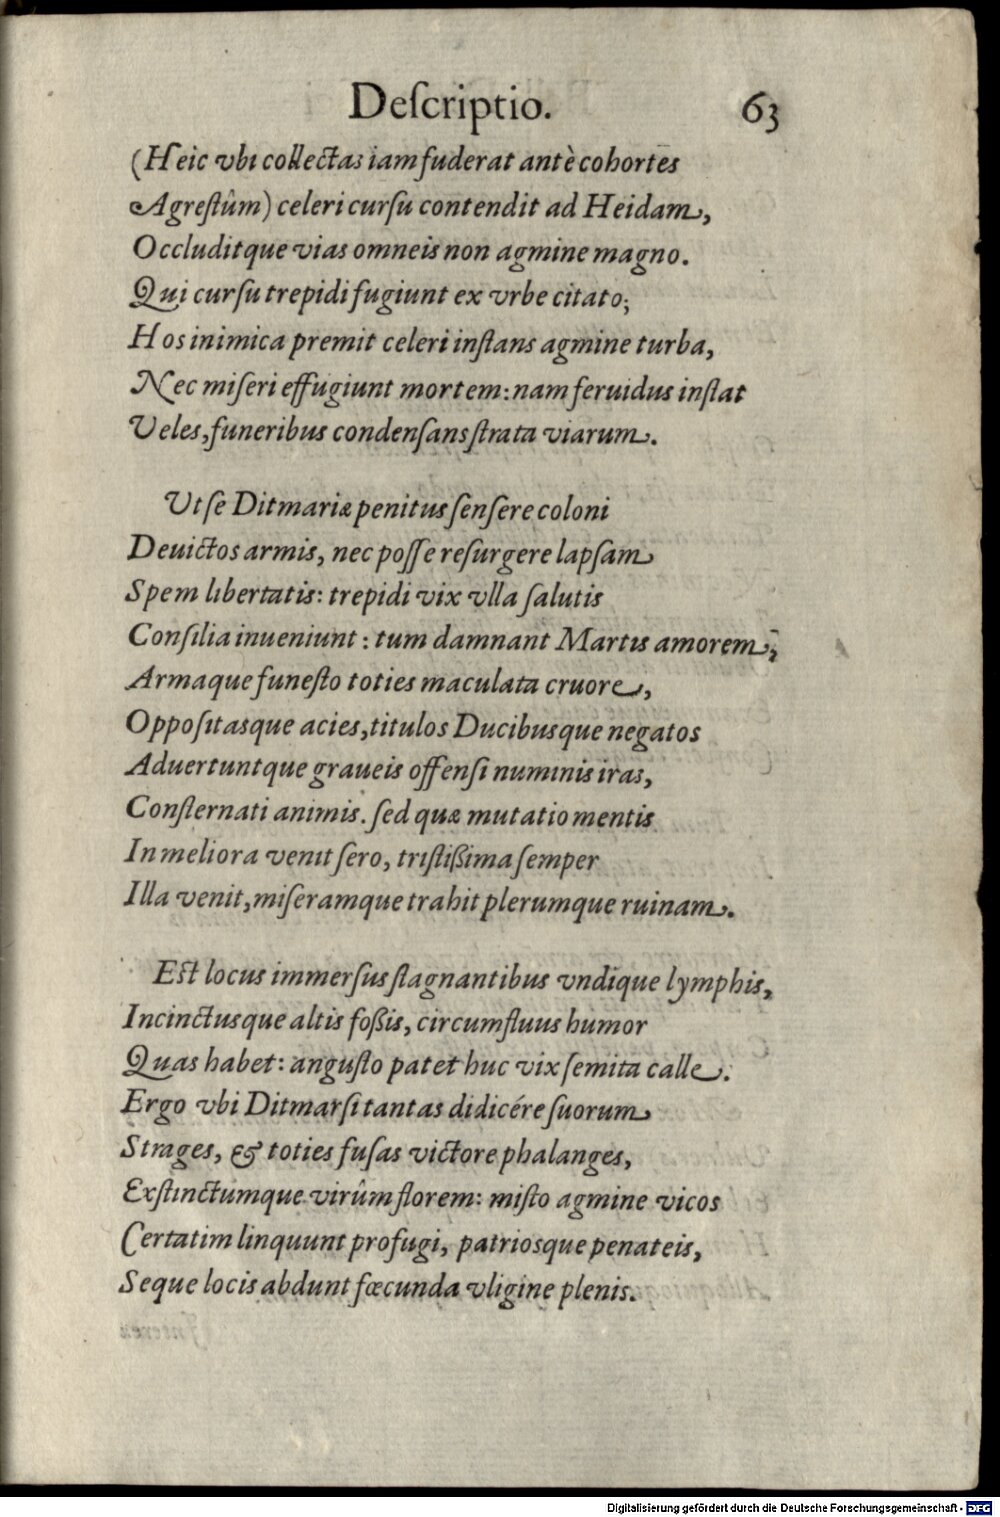 Deſcriptio. 63
(Heic vbi collectas iam fuderat antè cohortes
Agreſtûm) celeri curſu contendit ad Heidam,
Occluditque vias omneis non agmine magno.
Qui curſu trepidi fugiunt ex vrbe citato;
Hos inimica premit celeri inſtans agmine turba,
Nec miſeri effugiunt mortem: nam feruidus inſtat
Veles, funeribus condenſans ſtrata viarum.
Ut ſe Ditmariæ penitus ſenſere coloni
Deuictos armis, nec poſſe reſurgere lapſam
Spem libertatis: trepidi vix vlla ſalutis
Conſilia inueniunt: tum damnant Martis amorem,
Armaque funeſto toties maculata cruore,
Oppoſitasque acies, titulos Ducibusque negatos
Aduertuntque graueis offenſi numinis iras,
Conſternati animis. ſed quæ mutatio mentis
In meliora venit ſero, triſtißima ſemper
Illa venit, miſeramque trahit plerumque ruinam.
Est locus immerſus ſtagnantibus vndique lymphis,
Incinctusque altis foßis, circumfluus humor
Quas habet: anguſto patet huc vix ſemita calle.
Ergo vbi Ditmarſi tantas didicére ſuorum
Strages, & toties fuſas victore phalanges,
Exſtinctumque virûm florem: miſto agmine vicos
Certatim linquunt profugi, patriosque penateis,
Seque locis abdunt fœcunda vligine plenis.
Digitalisierung gefördert durch die Deutsche Forschungsgemeinschaft - DFG